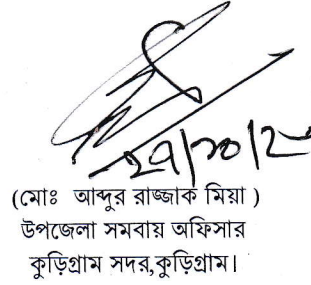 ২৭/১০/২
(মোঃ আব্দুর রাজ্জাক মিয়া )
উপজেলা সমবায় অফিসার
কুড়িগ্রাম সদর,কুড়িগ্রাম।